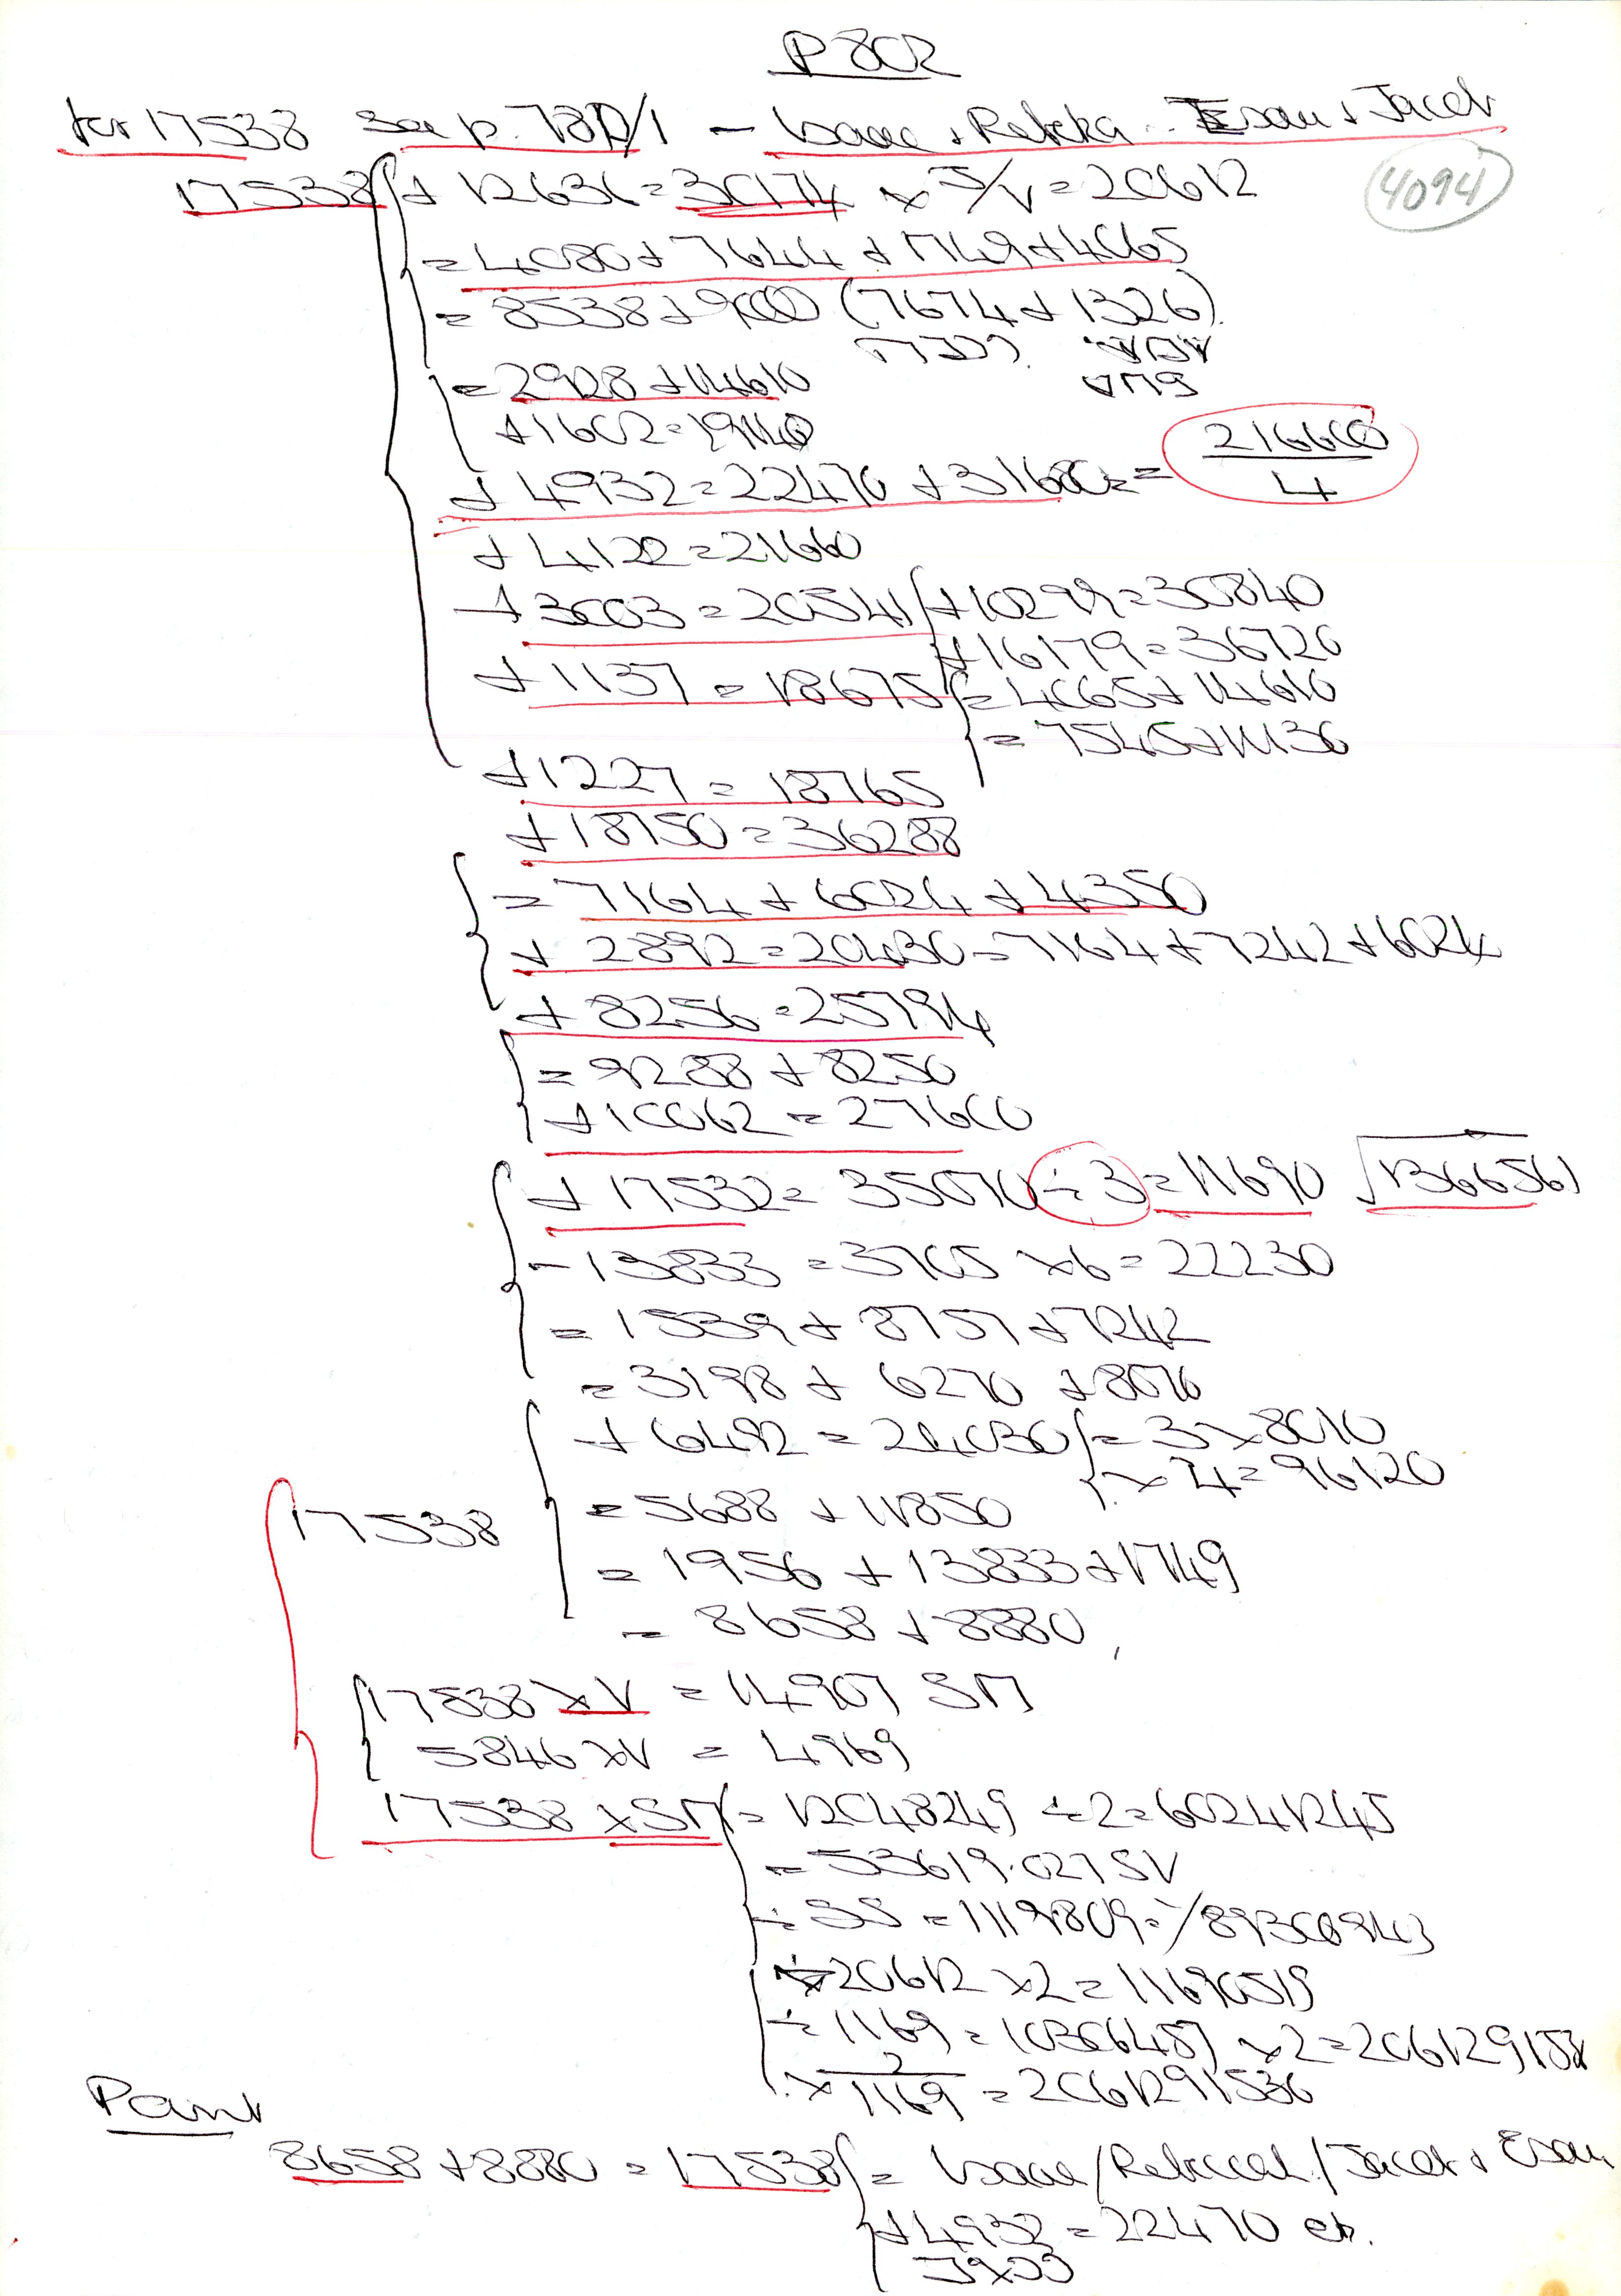 P 802
for 17538 See p. 781/1 - Isaac + Rebeka. Esau + Jacob
17538 + 12636 = 30174 x S/V = 20612
4094
= 4080 + 7644 + 1749 + 4065
= 8538 + 9000 (7674 + 1326)
= 2928 + 14610
+ 1602 = 19140
+ 4932 = 22470 + 31680 = 216600
4
+ 4122 = 21660
+ 3003 = 20541 + 10299 = 30840
+ 16179 = 36720
+ 1137 = 18675 = 4065 + 14610
= 7545 + 11130
+ 1227 = 18765
+ 18750 = 36288
= 7164 + 6024 + 4350
+ 2892 = 20430 = 7164 + 7242 + 6024
+ 8256 = 25794
= 9288 + 8250
+ 10062 = 27600
+ 17532 = 35070 ÷ 3 = 11690 √1366561
- 13833 = 3705 x 6 = 22230
= 1539 + 8757 + 7242
= 3198 + 6270 + 8070
+ 6492 = 24030 = 3 x 8010
x 4 = 96120
17538 = 5688 + 11850
= 1956 + 13833 + 1749
= 8658 + 8880
17538 x V = 14907 SM
5846 x V = 4969
17538 x SM = 12048249 ÷ 2 = 60241245
= 53619.027 SV
÷ SS = 1119809 = 1/89300943
÷ 20612 x 2 = 11690519
÷ 1169 = 10306457 x 2 = 206129158
x 2/1169 = 2061291536
Pam
8658 + 8880 = 17538 = Isaac/Rebeccah/Jacob + Esau
+ 4932 = 22470 etc.